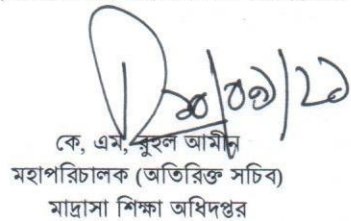 কে, এম, রুহুল আমীন
মহাপরিচালক (অতিরিক্ত সচিব)
মাদ্রাসা শিক্ষা অধিদপ্তর